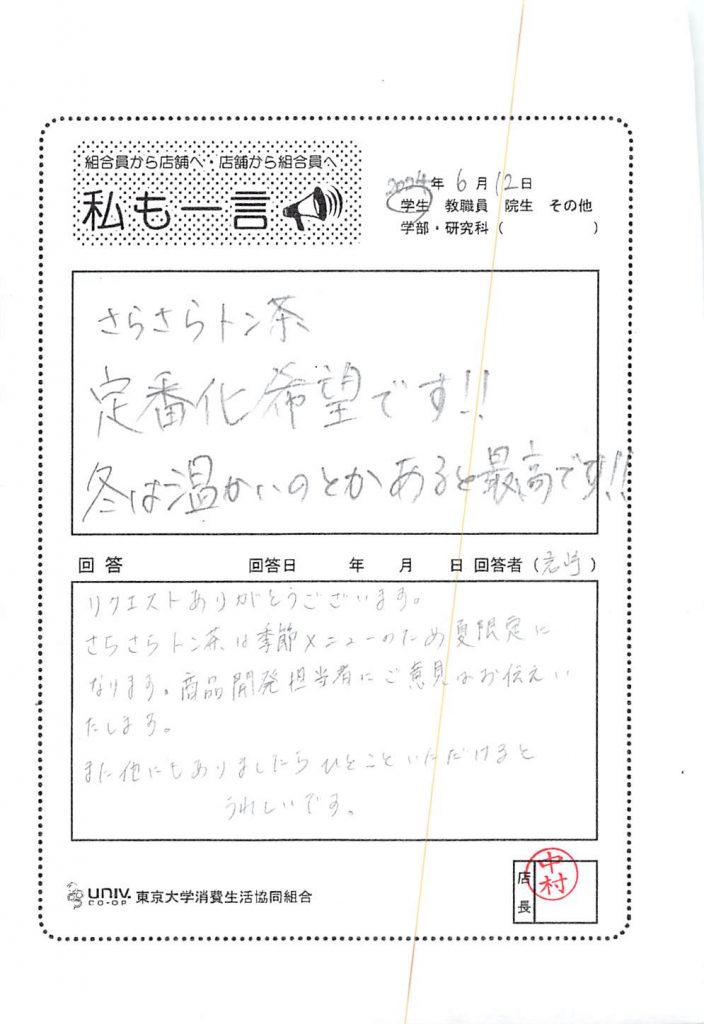 組合員から店舗へ・店舗から組合員へ
私も一言
2024年 6月 12日
学生 教職員 院生 その他
学部・研究科（ ）
さらさらトン茶
定番化希望です!!
冬は温かいのとかあると最高です!!
回答 回答日 年 月 日 回答者（岩崎）
リクエストありがとうございます。
さらさらトン茶は季節メニューのため夏限定に
なります。商品開発担当者にご意見はお伝えい
たします。
また他にもありましたらひとこといただけると
うれしいです。
UNIV. CO-OP 東京大学消費生活協同組合
店長
中村